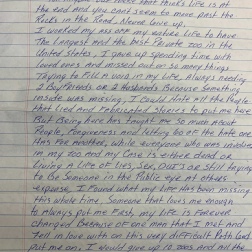 at the end and you cant seem to move past the
Rocks in the Road. Never Give up.
I worked my ass off my entire life to have
The Largest and the best Private zoo in the
United States. I gave up spending time with
loved ones and missed out on so many things
Trying to Fill a void in my life, Always needing
2 Boyfriends or 2 Husbands Because something
inside was missing. I could Hate all the People
that lied and Prosecuted stories to put me here
But Being here has taught me so much about
People, Forgiveness and letting go of the hate one
Has for another, while everyone who was involved
in my zoo and my Case is either dead or
living a life of lies, or still trying
to Be Someone in the Public eye at others
expense, I Found what my Life Has been missing
this whole time. Someone that loves me enough
to always put me First, my life is forever
changed Because of one man that I met and
fell in love with on this very difficult Path God
put me on. I would give up 10 zoos and all